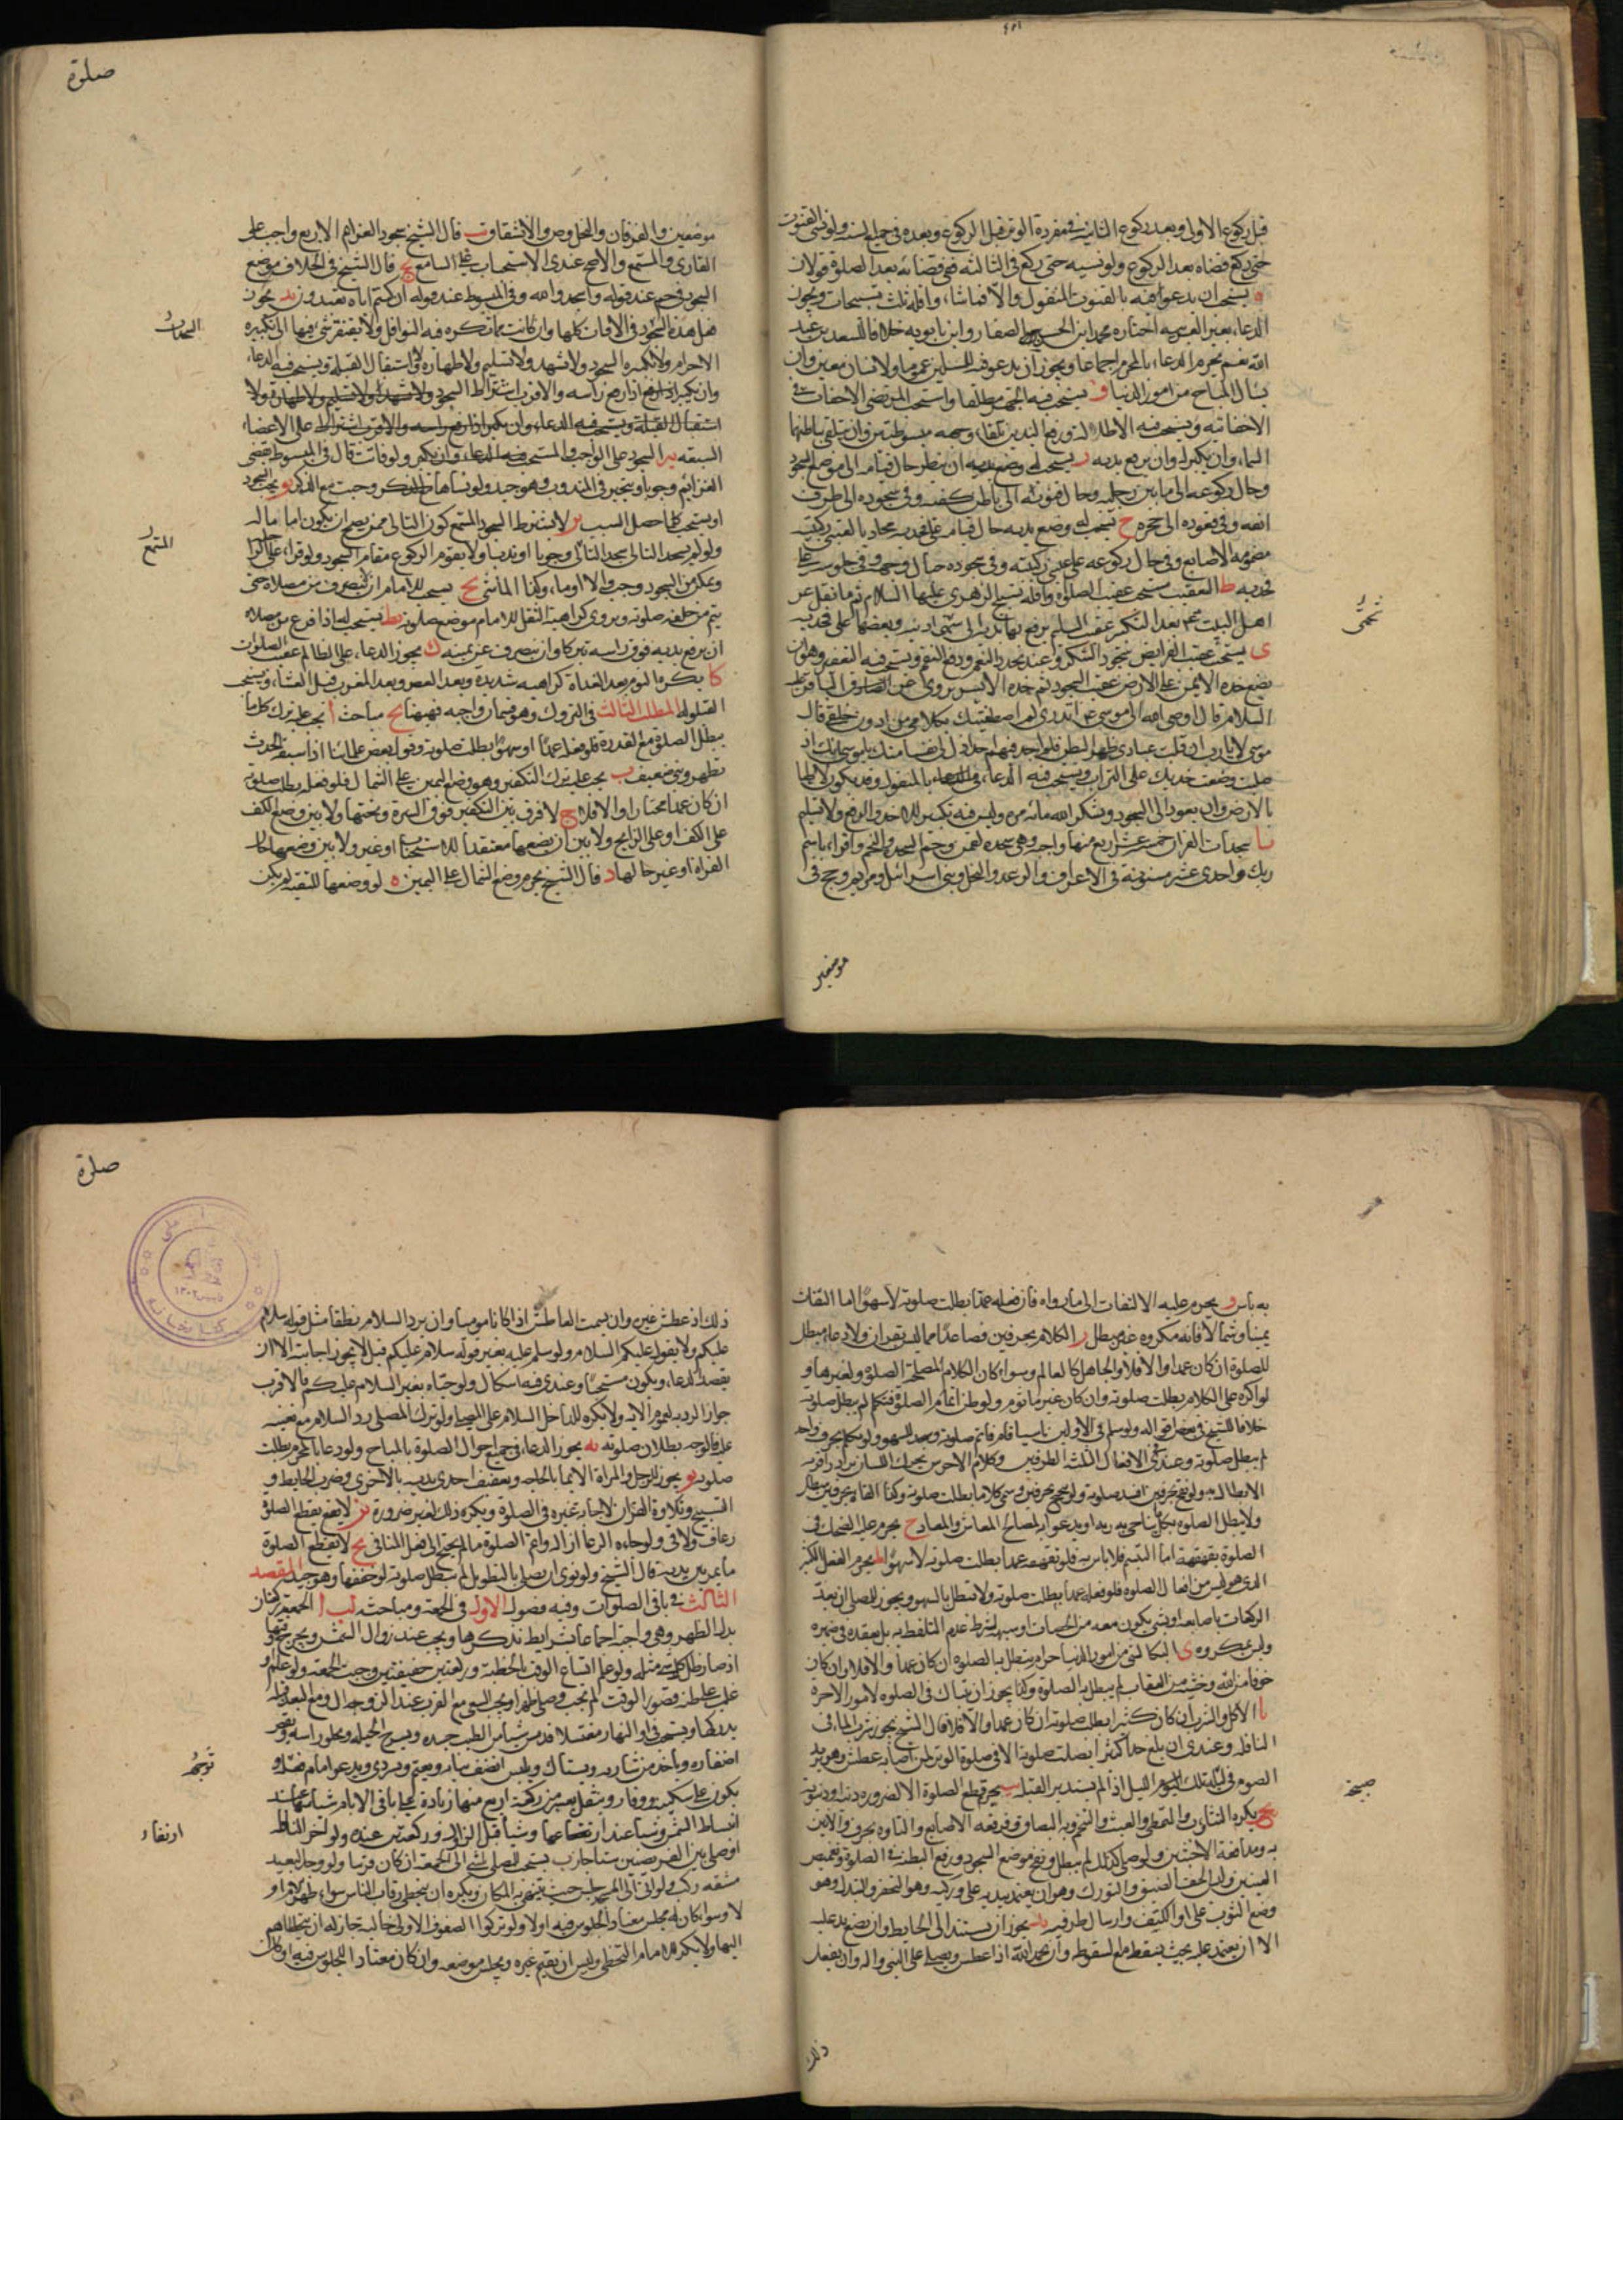 صلوة
قبل ركوع الاولى وبعد ركوع الثانية وفي مفردة الوتر قبل الركوع وبعده في جميع السنة ولو نسى القنوت
حتى ركع قضاه بعد الركوع ولو نسيه حتى ركع في الثالثة ففي قضائه بعد الصلوة قولان
ه يستحب ان يدعو فيه بالقنوت المنقول والا فبما شاء واقله ثلث تسبيحات ويجوز
الدعاء بغير العربية اختاره محمد ابن الحسن الصفار وابن بابويه خلافا لسعد بن عبد
الله نعم يحرم الدعاء بالمحرم اجماعا ويجوز ان يدعو فيه للمسلمين عموما ولانسان معين وان
يسأل المباح من امور الدنيا و يستحب فيه الجهر مطلقا واستحب المرتضى الاخفات في
الاخفاتية ويستحب فيه الاطالة ورفع اليدين تلقاء وجهه مبسوطتين وان يتلقى بباطنهما
السماء وان يكبر له وان يرفع يديه ز يستحب له ان ينظر حال قيامه الى موضع السجود
وحال ركوعه الى ما بين رجليه وحال قنوته الى باطن كفيه وفي سجوده الى طرف
انفه وفي قعوده الى حجره ح يستحب له وضع يديه حال قيامه على فخذيه محاذيا لعيني ركبتيه
مضمومة الاصابع وفي حال ركوعه على عيني ركبتيه وفي سجوده حيال وجهه وفي جلوسه على
فخذيه ط التعقيب مستحب عقيب الصلوة وافضله تسبيح الزهرى عليها السلام ثم ما نقل عن
اهل البيت عم بعد التكبير عقيب التسليم يرفع بها يديه الى شحمتى اذنيه ويضعها على فخذيه
شحمتى
ى يستحب عقيب الفرايض سجود الشكر وعند تجدد النعم ودفع النقم ويستحب فيه التعفير وهو ان
يضع خده الايمن على الارض عقيب السجود ثم خده الايسر روى عن الصادق الباقر عليه
السلام قال اوحى الله الى موسى عم اتدرى لم اصطفيتك بكلامى من دون خلقى قال
موسى لا يا رب
صليت وضعت خديك على التراب ويستحب فيه الدعاء بالمنقول وقد يكون لاطيا
بالارض وان يعود الى السجود ويشكر الله مائة مرة وليس فيه تكبيرة للاخذ والرفع ولا تسليم
يا سجدات القران خمس عشر اربع منها واجبة وهى سجدة لقمن وحم السجدة والنجم واقرا باسم
ربك واحدى عشر مسنونة في الاعراف والرعد والنحل وبنى اسرائيل ومريم وحج في
موضعين
موضعين والفرقان والنمل وص والانشقاق يب قال الشيخ سجود العزائم الاربع واجب على
القارى والمستمع والاصح عندى الاستحباب على السامع يج قال الشيخ في الخلاف موضع
السجود في حم عند قوله واسجدوا لله وفي المبسوط عند قوله ان كنتم اياه تعبدون يد يجوز
فعل هذه السجود في الاوقات كلها وان كانت مما تكره فيه النوافل ولا يفتقر شيء فيها الى تكبيرة
السجدات
الاحرام ولا تكبيرة السجود ولا تشهد ولا تسليم ولا طهارة ولا استقبال القبلة ويستحب فيه الدعاء
وان يكبر اذا رفع رأسه والاقرب اشتراط السجود ولا تشهد ولا تسليم ولا طهارة ولا
استقبال القبلة ويستحب فيه الدعاء وان يكبر اذا رفع راسه والاقرب اشتراط على الاعضاء
السبعة يه السجود على الواجب والمستحب ولو فاتت قال في المبسوط يقضى
العزائم وجوبا ويتخير في المندوب وهو جيد ولو نساها ثم ذكر وجبت مع الذكر يو يجب السجود
او يستحب كلما حصل السبب يز لا يشترط لسجود المستمع كون التالى ممن يصلح ان يكون اماما له
المستمع
ولو لم يسجد التالى سجد التالى وجوبا او ندبا ولا يقوم الركوع مقام السجود ولو قراء على الراحلة
وتمكن من السجود وجب والا اوما وكذا الماشى يح يستحب للامام ان لا ينصرف من مصلاه حتى
يتم من خلفه صلوته ويروى كراهية التنفل للامام موضع صلوته يط يستحب له اذا فرغ من صلاته
ان يرفع يديه فوق راسه تبركا وان ينصرف عن يمينه ك يجوز الدعاء على الظالم عقيب الصلوات
كا يكره النوم بعد الغداة كراهية شديدة وبعد العصر وبعد المغرب قبل العشاء ويستحب
القيلولة المطلب الثالث في التروك وهو قسمان واجبة فههنا يح مباحث ا تجب عليه ترك كل ما
يبطل الصلوة مع القدرة فلو فعله عمدا او سهوا بطلت صلوته وقول بعض علمائنا اذا سبقه الحدث
تطهر وبنى ضعيف ب يجب عليه ترك التكفير وهو وضع اليمين على الشمال فلو فعله بطلت صلوته
ان كان عمدا مختارا والا فلا ج لا فرق بين التكفير فوق السرة وتحتها ولا بين وضع الكف
على الكف او على الذراع ولا بين ان يضعهما معتقدا للاستحباب او غيره ولا بين وضعهما حال
القراة او غير حالها د قال الشيخ يحرم وضع الشمال على اليمين ه لو وضعهما للتقية لم يكن
صلوة
به باس و يحرم عليه الالتفات الى ما وراه فان فعله عمدا بطلت صلوته لا سهوا اما التفات
يمينا وشمالا فانه مكروه غير مبطل ز الكلام بحرفين فصاعدا مما ليس بقران ولا دعاء مبطل
للصلوة ان كان عمدا والا فلا والجاهل كالعالم وسواء كان الكلام لمصلحة الصلوة ولغيرها و
لو اكره على الكلام بطلت صلوته وان كان غير ماثوم ولو ظن اتمام الصلوة فتكلم لم يبطل صلوته
خلافا للشيخ في بعض اقواله ولو سلم في الاولين ناسيا قام فاتم صلوته وسجد للسهو ولو تكلم بحرف واحد
لم يبطل صلوته وعندى في الافعال الثلثة الطرفين وكلام الاخرس تحريك اللسان
الابطال به ولو نفخ بحرفين افسد صلوته ولو تنحنح بحرفين وسمى كلاما بطلت صلوته وكذا التاوه بحرفين يبطل
ولا يبطل الصلوة بكل ما يناجى به ربه او يدعو به لمصلحة المعاش والمعاد ح يحرم عليه الضحك في
الصلوة بقهقهة اما التبسم فلا باس به فلو قهقهه عمدا بطلت صلوته لا سهوا ط يحرم الفعل الكثير
الذى هو ليس من افعال الصلوة فلو فعله عمدا بطلت صلوته ولا تبطل بالسهو ويجوز للمصلى ان يعد
الركعات باصابعه او بشى يكون معه من الحصيات او شبهه بشرط عدم التلفظ به بل يعقده في ضميره
وليس بمكروه ى البكاء لشى من امور الدنيا حرام يبطل به الصلوة ان كان عمدا والا فلا وان كان
خوفا من الله وخشية من العقاب لم يبطل به الصلوة وكذا يجوز ان يتباكى في الصلوة لامور الاخرة
يا الاكل والشرب ان كان كثيرا يبطلت صلوته ان كان عمدا والا فلا قال الشيخ يجوز شرب الماء في
النافلة وعندى ان بلغ حد الكثير ابطلت صلوته الا في صلوة الوتر لمن اصابه عطش وهو يريد
الصوم في ليلته تلك اذا لم يستدبر القبلة يب يحرم قطع الصلوة الا لضرورة دينه او دنيويه
صبيحة
يج يكره التثاوب والتمطى والعبث والتنخم والبصاق وفرقعة الاصابع والتاوه بحرف والانين
به ومدافعة الاخبثين ولو صلى كذلك لم يبطل ونفخ موضع السجود ورفع البطن في الصلوة وتغميض
العينين ولبس الخف الضيق والتورك وهو ان يعتمد بيديه على وركيه وهو التخصر والسدل وهو
وضع الثوب على او الكتف وارسال طرفيه يد يجوز ان يستند الى الحايط وان يضع يده عليه
الا ان يعتمد عليه بحيث يسقط مع لسقوطه وان يحمد الله اذا عطس ويصلى على النبى واله وان يفعل
ذلك
ذلك اذ عطس غيره وان يسمت العاطش اذا كانا مومنا وان يرد السلام نطقا مثل قوله سلام
عليكم ولا يقول عليكم السلام ولو سلم عليه بغير قوله سلام عليكم قيل لا يجوز اجابته الا ان
يقصد الدعاء ويكون مستحقا وعندى فيه اشكال ولو حياه بغير السلام عليكم فالاقرب
جواز الرد به لعموم الاية ولا يكره للداخل السلام على المصلى ولو ترك المصلى رد السلام مع تعينه
عليه فالوجه بطلان صلوته يه يجوز الدعاء في جميع احوال الصلوة بالمباح ولو دعا بالمحرم بطلت
صلوته يو يجوز للرجل والمراة الايما بالحاجة وتصفيق احدى يديه بالاخرى وضرب الحايط و
التسبيح وتلاوة القران لاخبار غيره في الصلوة ويكره ذلك لغير ضرورة يز لا يقطع الصلوة
رعاف ولا قى ولو جاءه الرعاف ازاله واتم الصلوة ما لم يحتج الى فعل المنافى يح لا يقطع الصلوة
ما يمر بين يديه قال الشيخ ولو نوى ان يصلى بالتطويل لم تبطل صلوته لو خففها وهو جيد المقصد
الثالث في باقى الصلوات وفيه فصول الاول في الجمعة ومباحثه لب ا الجمعة ركعتان
بدل الظهر وهى واجبة اجماعا بشرايط نذكرها ويجب عند زوال الشمس ويخرج وقتها
اذ صار ظل كل شيء مثله ولو علم اتساع الوقت للخطبة وركعتين خفيفتين وجبت الجمعة ولو علم او
غلب على ظنه قصور الوقت لم يجب وصلى ظهرا ويجب السعى مع القرب عند الزوال ومع البعد قبله
يدركها ويستحب في اول النهار مغتسلا قد مس شيأ من الطيب جسده ويسرح لحيته ويحلق راسه ويقص
اظفاره وياخذ من شاربه ويستاك ويلبس انظف ثيابه ويعتم ويرتدى ويدعو امام توجهه و
توجهه
يكون على سكينة ووقار ويتنفل بعشرين ركعة اربع منها زيادة على باقى الايام ستا عند
انبساط الشمس وستا عند ارتفاعها وستا قبل الزوال وركعتين عنده ولو اخر النافلة
ارتفاء
او صلى بين الفريضتين ستا جاز ب يستحب للمصلى المشى الى الجمعة ان كان قريبا ولو وجد لبعيد
مشقة ركب ولو اتى الى المسجد جلس حيث ينتهى به المكان ويكره ان يتخطى رقاب الناس سواء ظهر الامام او
لا وسواء كان له مجلس معتاد الجلوس فيه او لا ولو تركوا الصفوف الاولى خالية جاز له ان يتخطاهم
اليها ولا يكره للامام التخطى وليس ان يقيم غيره ويجلس موضعه وان كان معتادا للجلوس فيه او كان